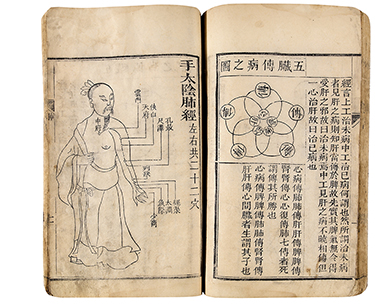 五臟傳病之圖
經言上工治未病中工治已病何謂也然所謂治未病
者見肝之病則知肝當傳於脾故先實其脾氣無令得
受肝之邪故曰治未病焉中工見肝之病不曉相傳但
一心治肝故曰治已病也
傳
心病傳肺肺傳肝肝傳脾脾傳
腎腎傳心心復傳肺七傳者死
謂傳其所勝也
心病傳脾脾傳肺肺傳腎腎傳
肝肝傳心間臟者生謂其子也
手太陰肺經 左右共二十二穴
雲門
中府
天府
俠白
尺澤
孔最
列缺
經渠
太淵
魚際
少商